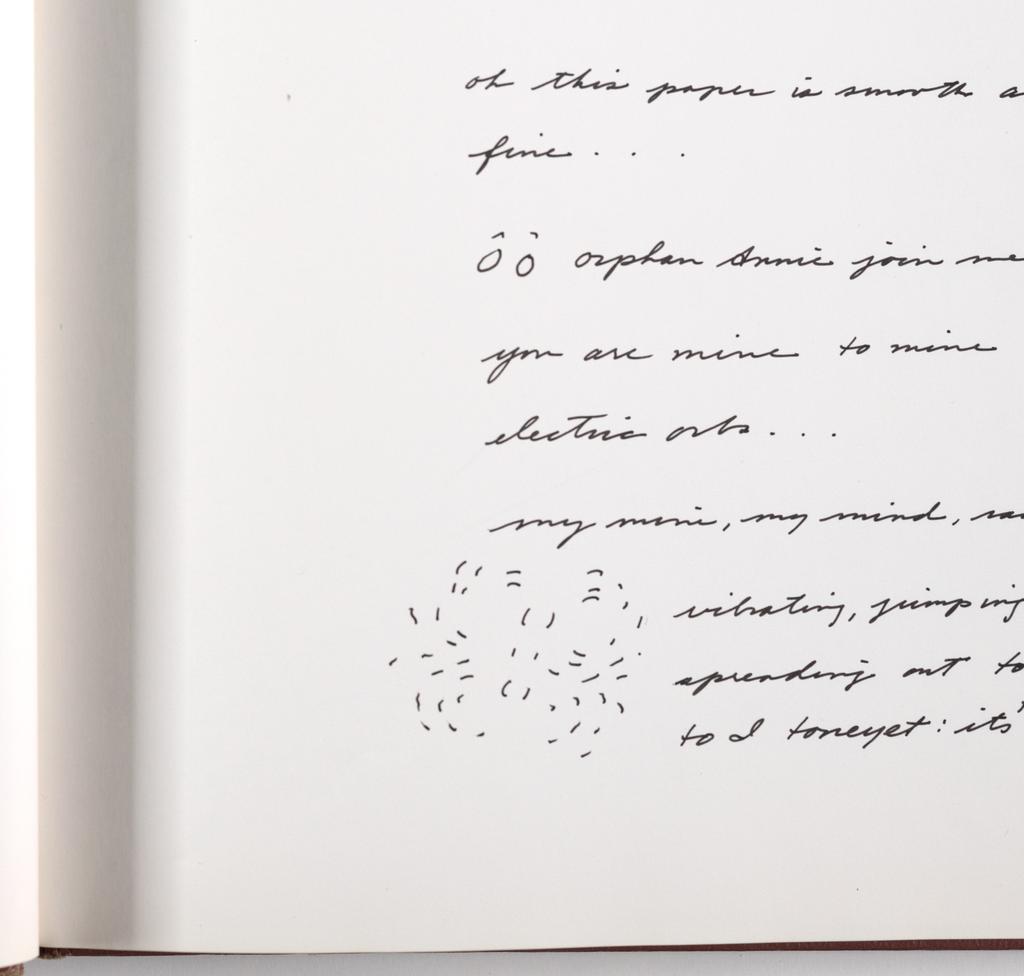 oh this paper is smooth a
fine . . .
ô ô orphan Annie join me
you are mine to mine
electric orbs . . .
my mine, my mind,
vibrating, jumping
spreading out to
to I : its'